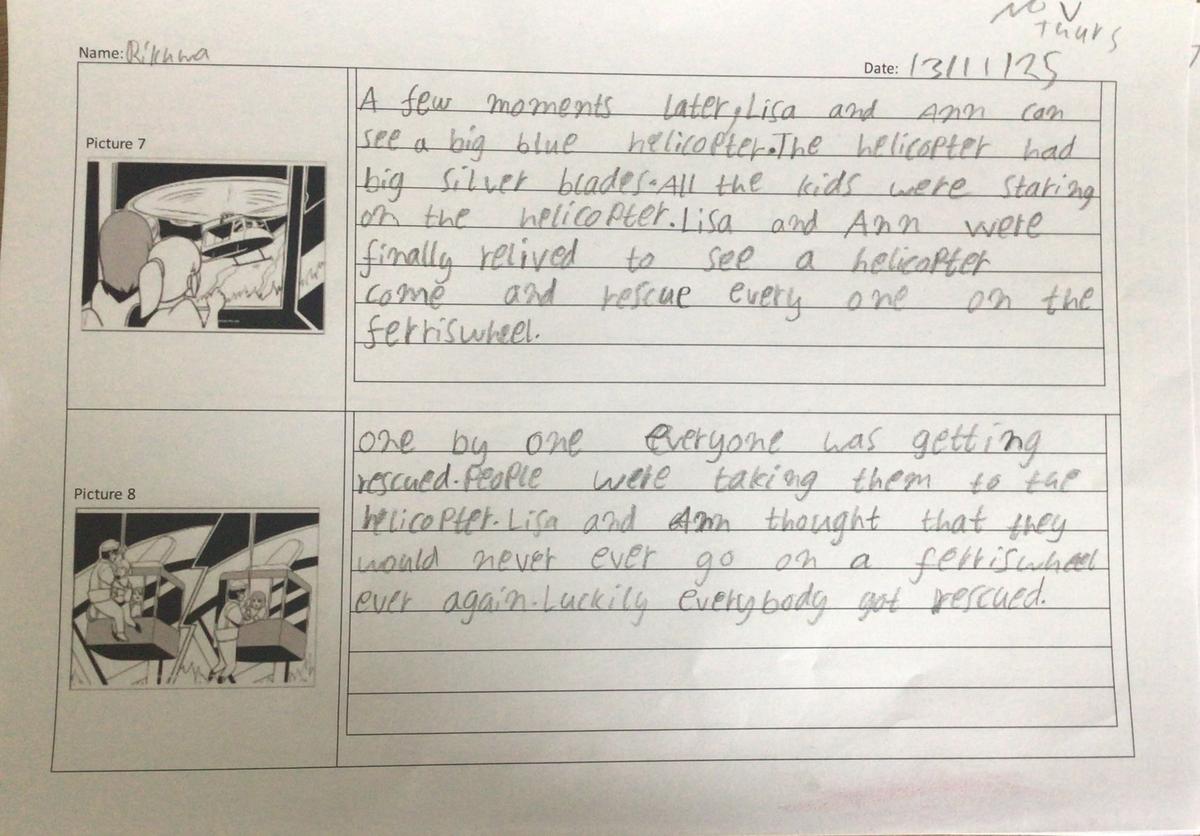 Nov
Thurs
Name: Rikhwa
Date: 13/11/25
Picture 7
A few moments later, Lisa and Ann can
see a big blue helicopter. The helicopter had
big silver blades. All the kids were staring
on the helicopter. Lisa and Ann were
finally relived to see a helicopter
come and rescue every one on the
ferriswheel.
Picture 8
one by one everyone was getting
rescued. People were taking them to the
helicopter. Lisa and Ann thought that they
would never ever go on a ferriswheel
ever again. Luckily everybody got rescued.